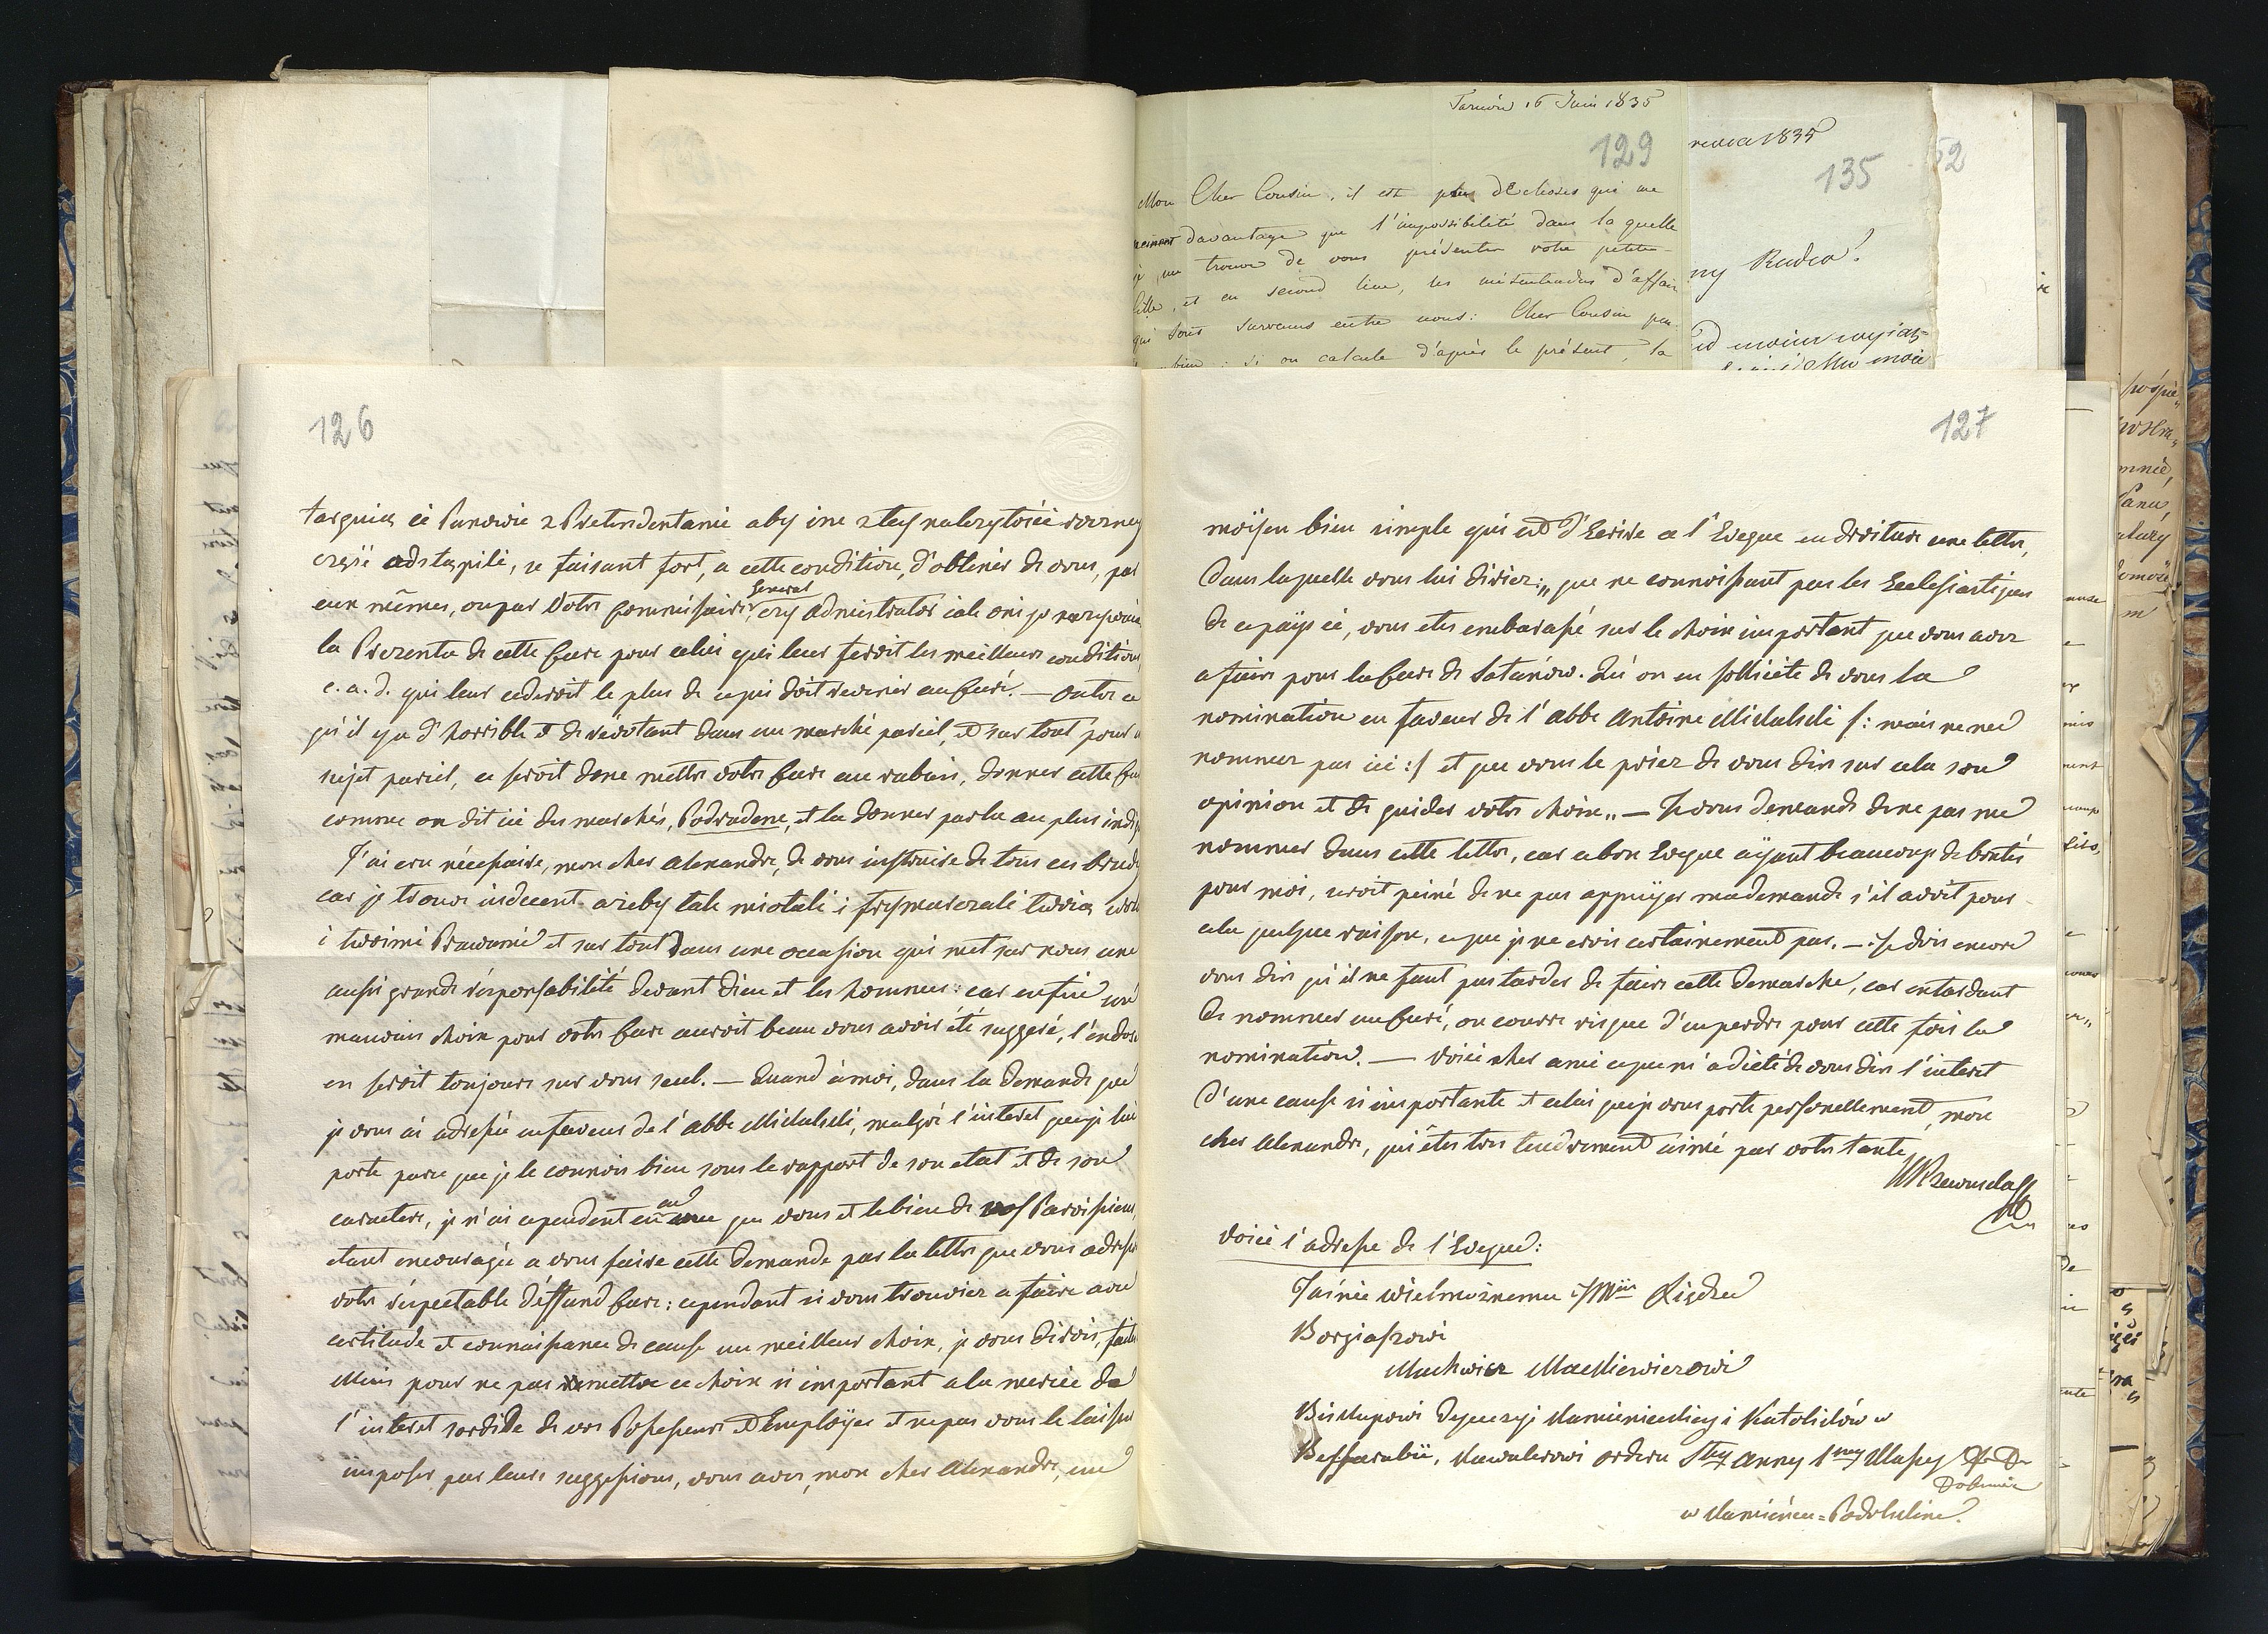 126
targuią ci Panowie z Pretendentami aby ine z tey należytości
ustąpili, se faisant fort, a cette condition, d'obtenir de vous, par
eux mêmes, ou par Votre Commissaire General, czy Administrator iak oni go nazywaią
la Prezenta de cette Cure pour celui qui leur feroit les meilleurs conditions
c. a. d. qui leur cederoit le plus de ce qui doit revenir au Curé. — Outre ce
qu'il y a d'horrible et de révoltant dans un marché pareil, et sur tout pour un
sujet pareil, ce seroit donc mettre votre Cure au rabais, donner cette Cure
comme on dit ici des marchés, Podradem, et la donner par la au plus indigne
J'ai cru nécessaire, mon cher Alexandre, de vous instruire de tous ces
car je trouve indecent azeby tak miotali i frymarczali twoią
i twoimi Prawami et sur tout dans une occasion qui met sur nous une
aussi grande résponsabilité devant Dieu et les hommes: car enfin un
mauvais choix pour votre Cure auroit beau vous avoir été suggeré, l'endosse
en seroit toujours sur vous seul. — Quand à moi, dans la demande que
je vous ai adressée en faveur de l'abbe Michalski, malgré l'interet que je lui
porte parce que je le connois bien sous le rapport de son etat et de son
caractere, je n'ai cependent en vue que vous et le bien de vos Paroissiens,
etant encouragée a vous faire cette demande par la lettre que vous adressé
votre réspectable déffund Curé: cependant si vous trouviez a faire avec
certitude et connaissance de cause un meilleur choix, je vous dirois, faites
Mais pour ne pas remettre ce choix si important a la merci de
l'interet sordide de vos Possesseurs et Employés et ne pas vous le laisser
imposer par leurs suggestions, vous avez, mon cher Alexandre, un
Tarnów 16 Juin 1835
129
Mon Cher Cousin, il est peu de choses qui me
peinent davantage que l'impossibilité dans la quelle
je me trouve de vous présenter votre petite
fille, et en second lieu, les mésentendus d'affair
qui sont survenus entre nous: Cher Cousin
bien: si on calcule d'après le présent, la
1835
135
52
ny Rudca!
127
moÿen bien simple qui est d'Ecrire a l'Eveque en droiture une lettre,
dans laquelle vous lui disiez: „que ne connoissant pas les Ecclesiastiques
de ce païs ci, vous etes embarassé sur le choix important que vous avez
a faire pour la Cure de Satanów. Qu'on en sollicite de vous la
nomination en faveur de l'abbe Antoine Michalski /: mais ne me
nommez pas ici :/ et que vous le priez de vous dire sur cela son
opinion et de guider votre choix„ — Je vous demande de ne pas me
nommer dans cette lettre, car ce bon Eveque ayant beaucoup de bontés
pour moi, seroit peiné de ne pas appuÿer ma demande s'il avoit pour
cela quelque raison, ce que je ne crois certainement pas. — Je dois encore
vous dire qu'il ne faut pas tarder de faire cette demarche, car en tardant
de nommer un Curé, on courre risque d'en perdre pour cette fois la
nomination. — Voici cher ami ce que m'a dicté de vous dire l'interet
d'une cause si importante et celui que je vous porte personellement, mon
cher Alexandre, qui êtes tres tendrement aimé par votre tante
Rzewuska
Voici l'adresse de l'Eveque:
Jaśnie Wielmożnemu Xiędzu
Borgiaszowi
Mackiewiczowi
Biskupowi Dyecezyi Kamienieckiey i Katolików w
Bessarabii, Kawalerowi Orderu Stey Anny 1wszey Klassy
Dobrodz.
w Kamieńcu=Podolskim.